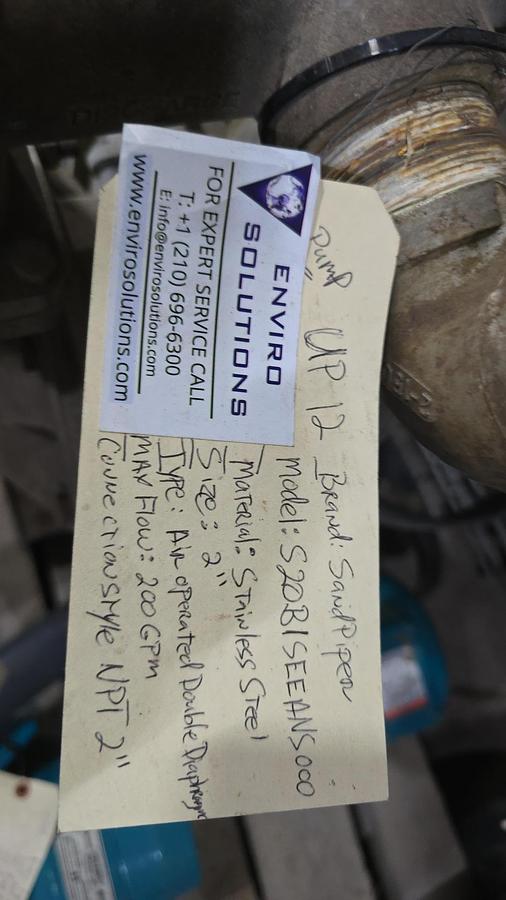 ENVIRO
SOLUTIONS
FOR EXPERT SERVICE CALL
T: +1 (210) 696-6300
E: info@envirosolutions.com
www.envirosolutions.com
Pump
UP 12
Brand: SandPiper
Model: S20B1SEEANS000
Material: Stainless Steel
Size: 2"
Type: Air operated Double Diaphragm
Max Flow: 200 GPM
Connection Style NPT 2"